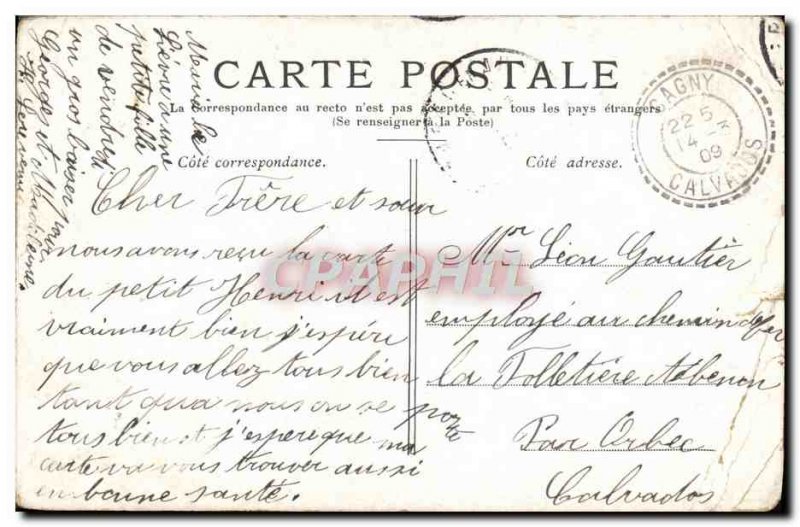 CARTE POSTALE
La Correspondance au recto n'est pas acceptée par tous les pays étrangers
(Se renseigner à la Poste)
Côté correspondance.
Côté adresse.
Cher Frère et sœur
nous avons reçu la carte
du petit Henri il est
vraiment bien j'espére
que vous allez tous bien
tant qua nous on se porte
tous bien et j'espere que ma
carte va vous trouver aussi
en bonne santé.
de vendredi
un gros baiser pour
George et
Mr Léon Gautier
employé au chemin de fer
la Folletière Abenon
Par Orbec
Calvados
CAGNY
22 5
14
09
CALVADOS
CPAPHIL